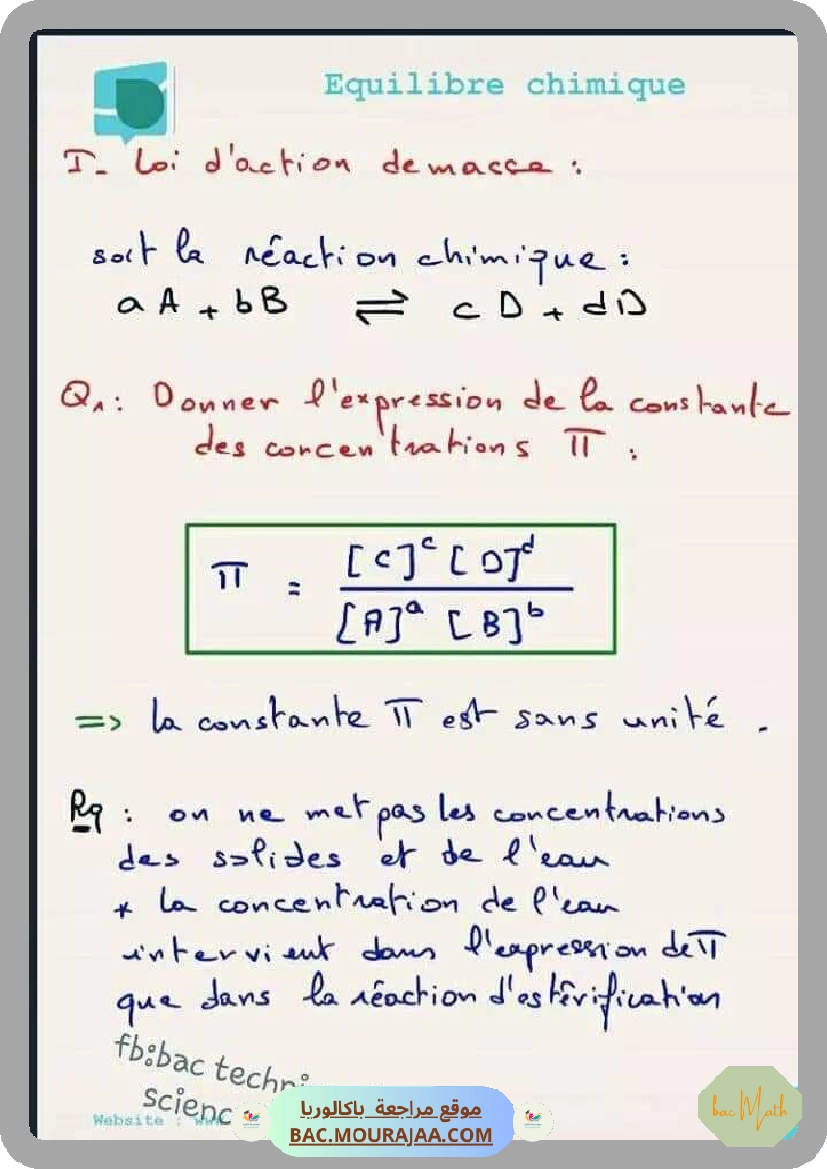 Equilibre chimique
I- Loi d'action de masse :
soit la réaction chimique :
a A + b B ⇌ c D + d D
Q1 : Donner l'expression de la constante
des concentrations π :
π = [C]^c [D]^d / [A]^a [B]^b
=> la constante π est sans unité .
Rq : on ne met pas les concentrations
des solides et de l'eau
* la concentration de l'eau
intervient dans l'expression de π
que dans la réaction d'estérification
fb:bac techni
scienc
Website :
موقع مراجعة باكالوريا
BAC.MOURAJAA.COM
bac Math